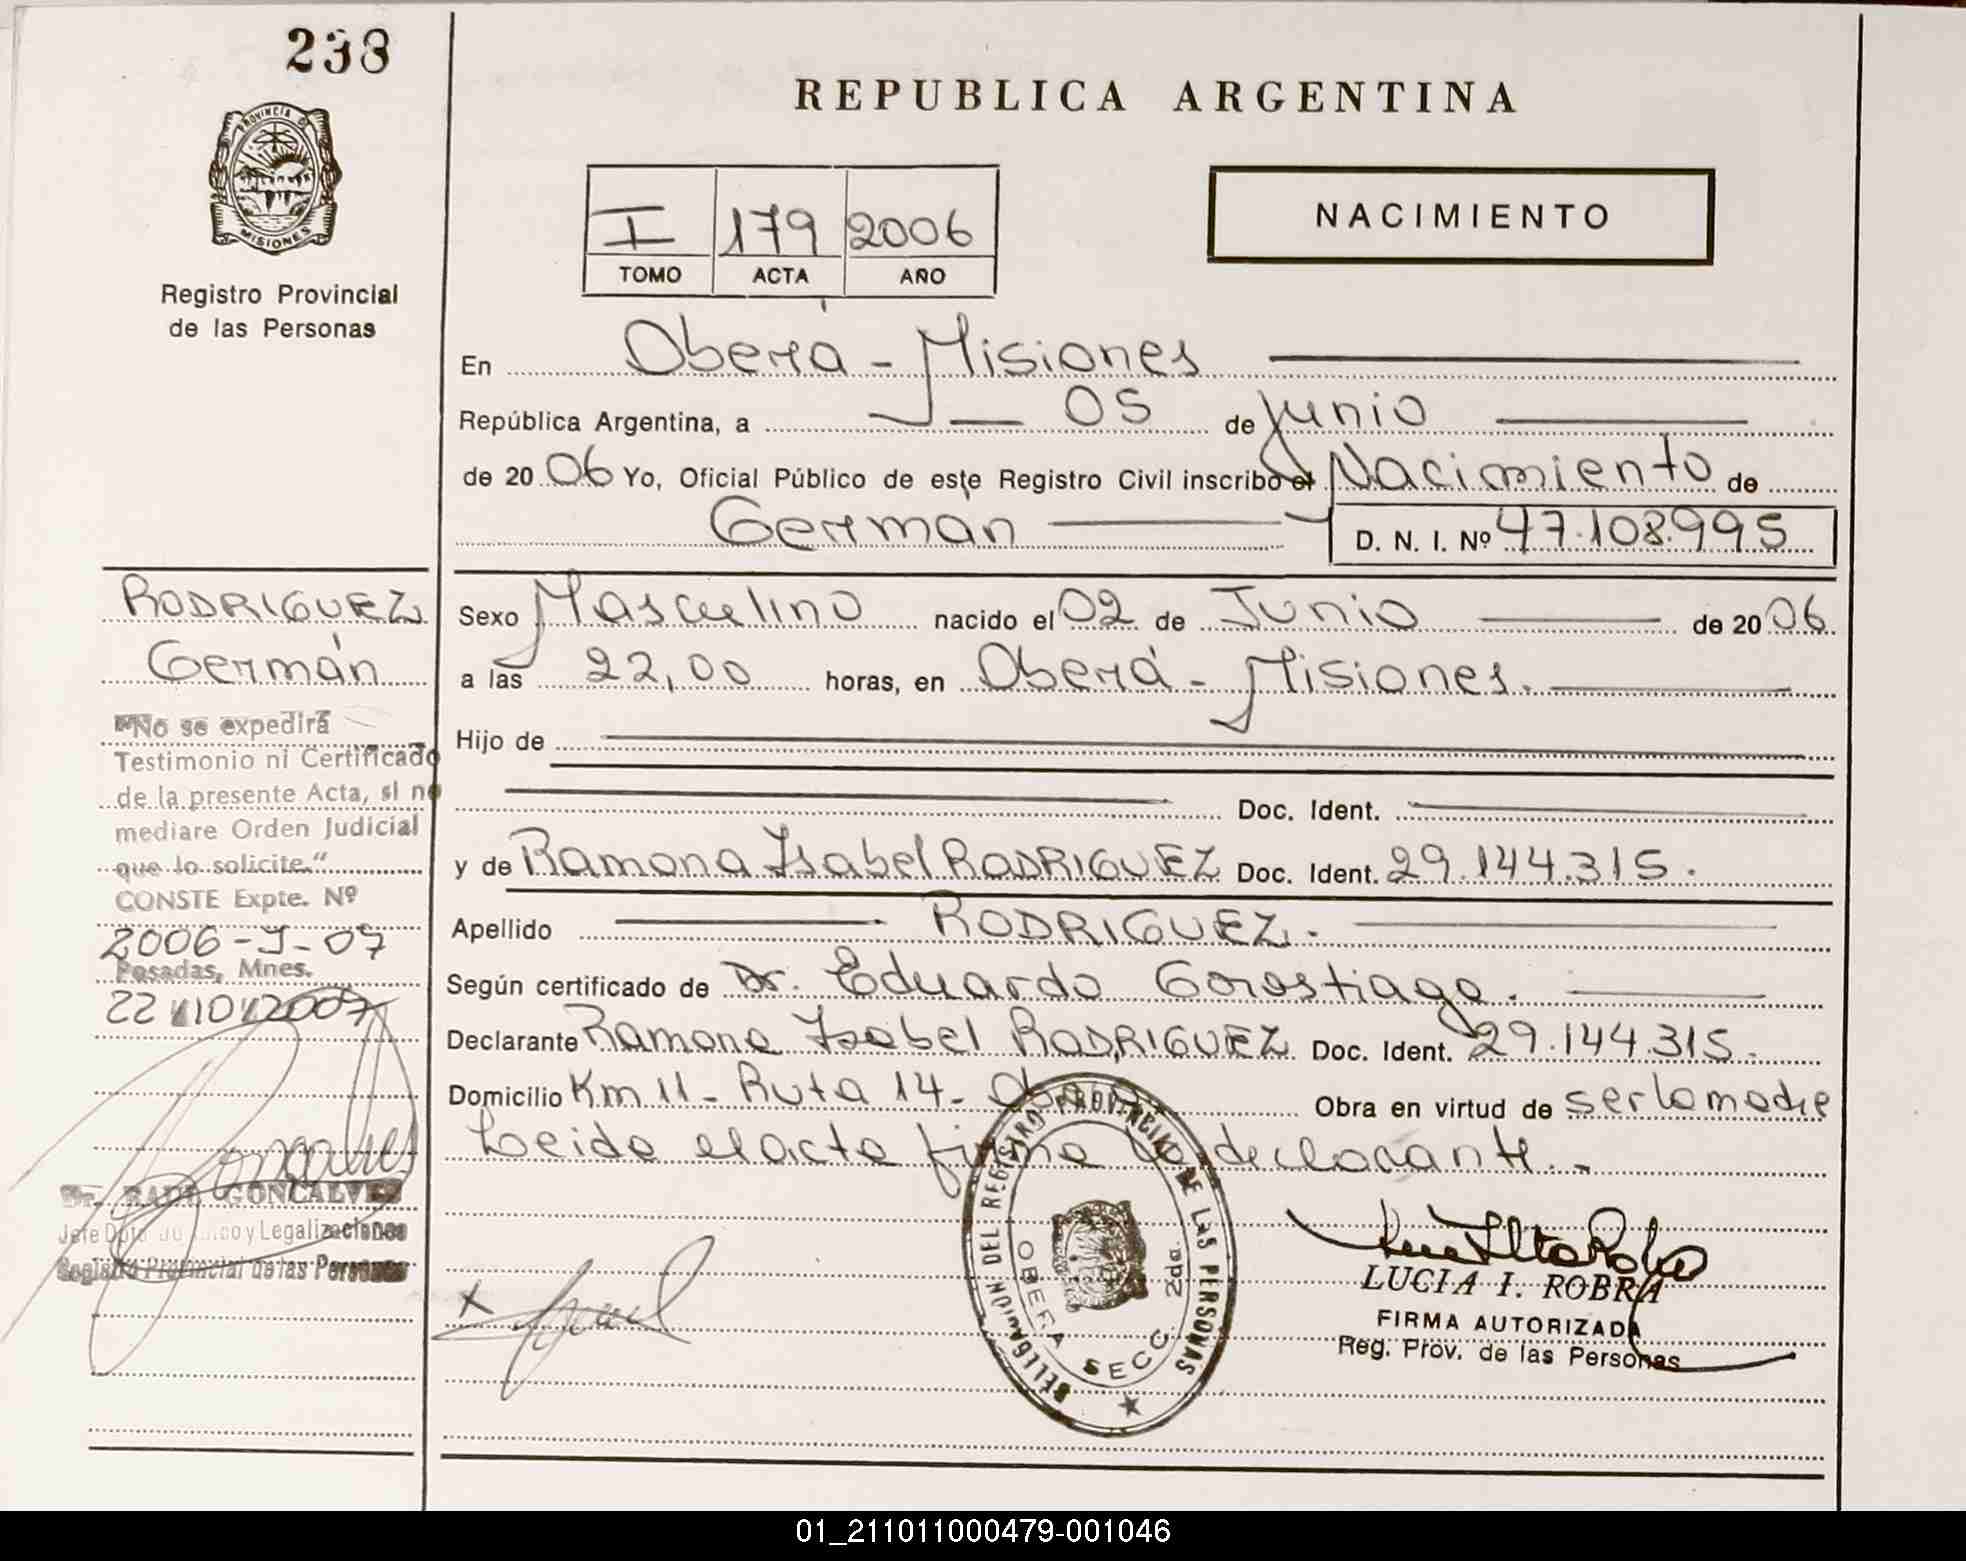 238
PROVINCIA DE
MISIONES
Registro Provincial
de las Personas
REPUBLICA ARGENTINA
I 179 2006
TOMO ACTA AÑO
NACIMIENTO
En Oberá - Misiones
República Argentina, a 05 de Junio
de 2006 Yo, Oficial Público de este Registro Civil inscribo el Nacimiento de
Germán D. N. I. Nº 47.108.995
RODRIGUEZ
Germán
"No se expedirá
Testimonio ni Certificado
de la presente Acta, si no
mediare Orden Judicial
que lo solicite."
CONSTE Expte. Nº
2006-J-07
Posadas, Mnes.
22/10/2007
Dr. RAUL GONCALVEZ
Jefe Dpto y Legalizaciones
Registro Provincial de las Personas
Sexo Masculino nacido el 02 de Junio de 2006
a las 22,00 horas, en Oberá - Misiones.
Hijo de
Doc. Ident.
y de Ramona Isabel RODRIGUEZ Doc. Ident. 29.144.315.
Apellido RODRIGUEZ.
Según certificado de Dr. Eduardo Gorostiaga.
Declarante Ramona Isabel RODRIGUEZ Doc. Ident. 29.144.315.
Domicilio Km 11 - Ruta 14 - Oberá Obra en virtud de ser la madre
Leida el acta firma la declarante.-
DELEGACION DEL REGISTRO PROVINCIAL DE LAS PERSONAS
OBERA SECC. 2da.
x
LUCIA I. ROBRA
FIRMA AUTORIZADA
Reg. Prov. de las Personas
01_211011000479-001046